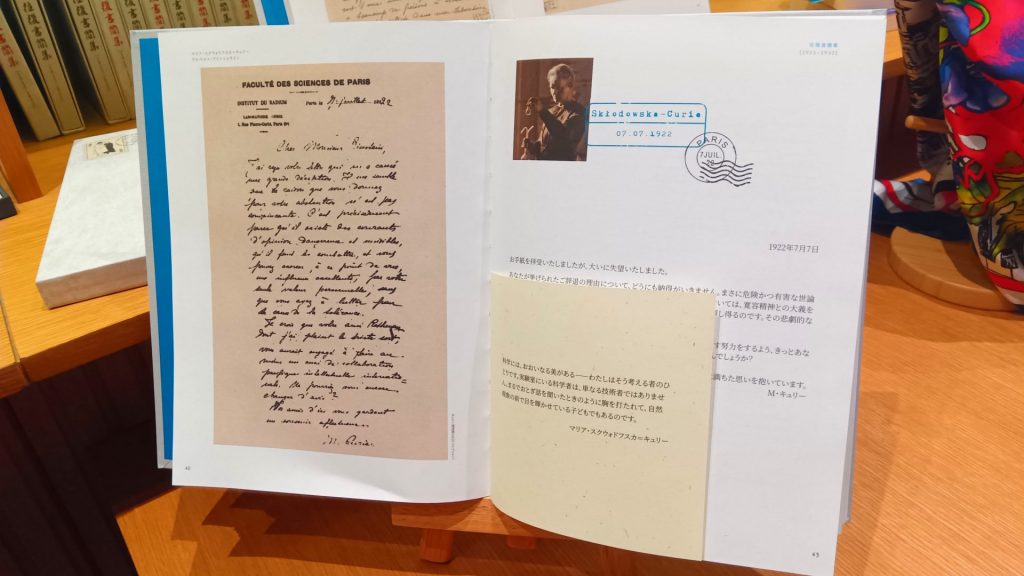 往復書簡集
往復書簡集
FACULTÉ DES SCIENCES DE PARIS
INSTITUT DU RADIUM
Paris le
LABORATOIRE CURIE
1, Rue Pierre-Curie, Paris (5e)
Cher Monsieur Einstein,
J'ai reçu votre lettre qui m'a causé
une grande déception. Il me semble
que la raison que vous donnez
pour votre abstention n'est pas
convaincante. C'est précisément
parce qu'il existe des courants
d'opinion dangereux et nuisibles,
qu'il faut les combattre, et vous
pouvez exercer, à ce point de vue,
une influence excellente, par votre
seule valeur personnelle, sans
que vous ayez à lutter pour
la cause de la tolérance.
Je crois que votre ami
dont j'ai
vous aurait engagé à faire
un essai de collaboration
pacifique intellectuelle internatio-
nale. Ne pourriez vous encore
changer d'avis?
Vos amis d'ici vous gardent
un souvenir affectueux.
M. Curie
42
Skłodowska-Curie
07.07.1922
PARIS
7 JUIL
1922年7月7日
お手紙を拝受いたしましたが、大いに失望いたしました。
あなたが挙げられたご辞退の理由について、どうにも納得がいきません。まさに危険かつ有害な世論
ついては、寛容精神との大義を
し得るのです。その悲劇的な
す努力をするよう、きっとあな
んでしょうか?
満ちた思いを抱いています。
M・キュリー
科学には、おおいなる美がある――わたしはそう考える者のひ
とりです。実験室にいる科学者は、単なる技術者ではありませ
ん。まるでおとぎ話を聞いたときのように胸を打たれて、自然
現象の前で目を輝かせている子どもでもあるのです。
マリア・スクウォドフスカ=キュリー
43